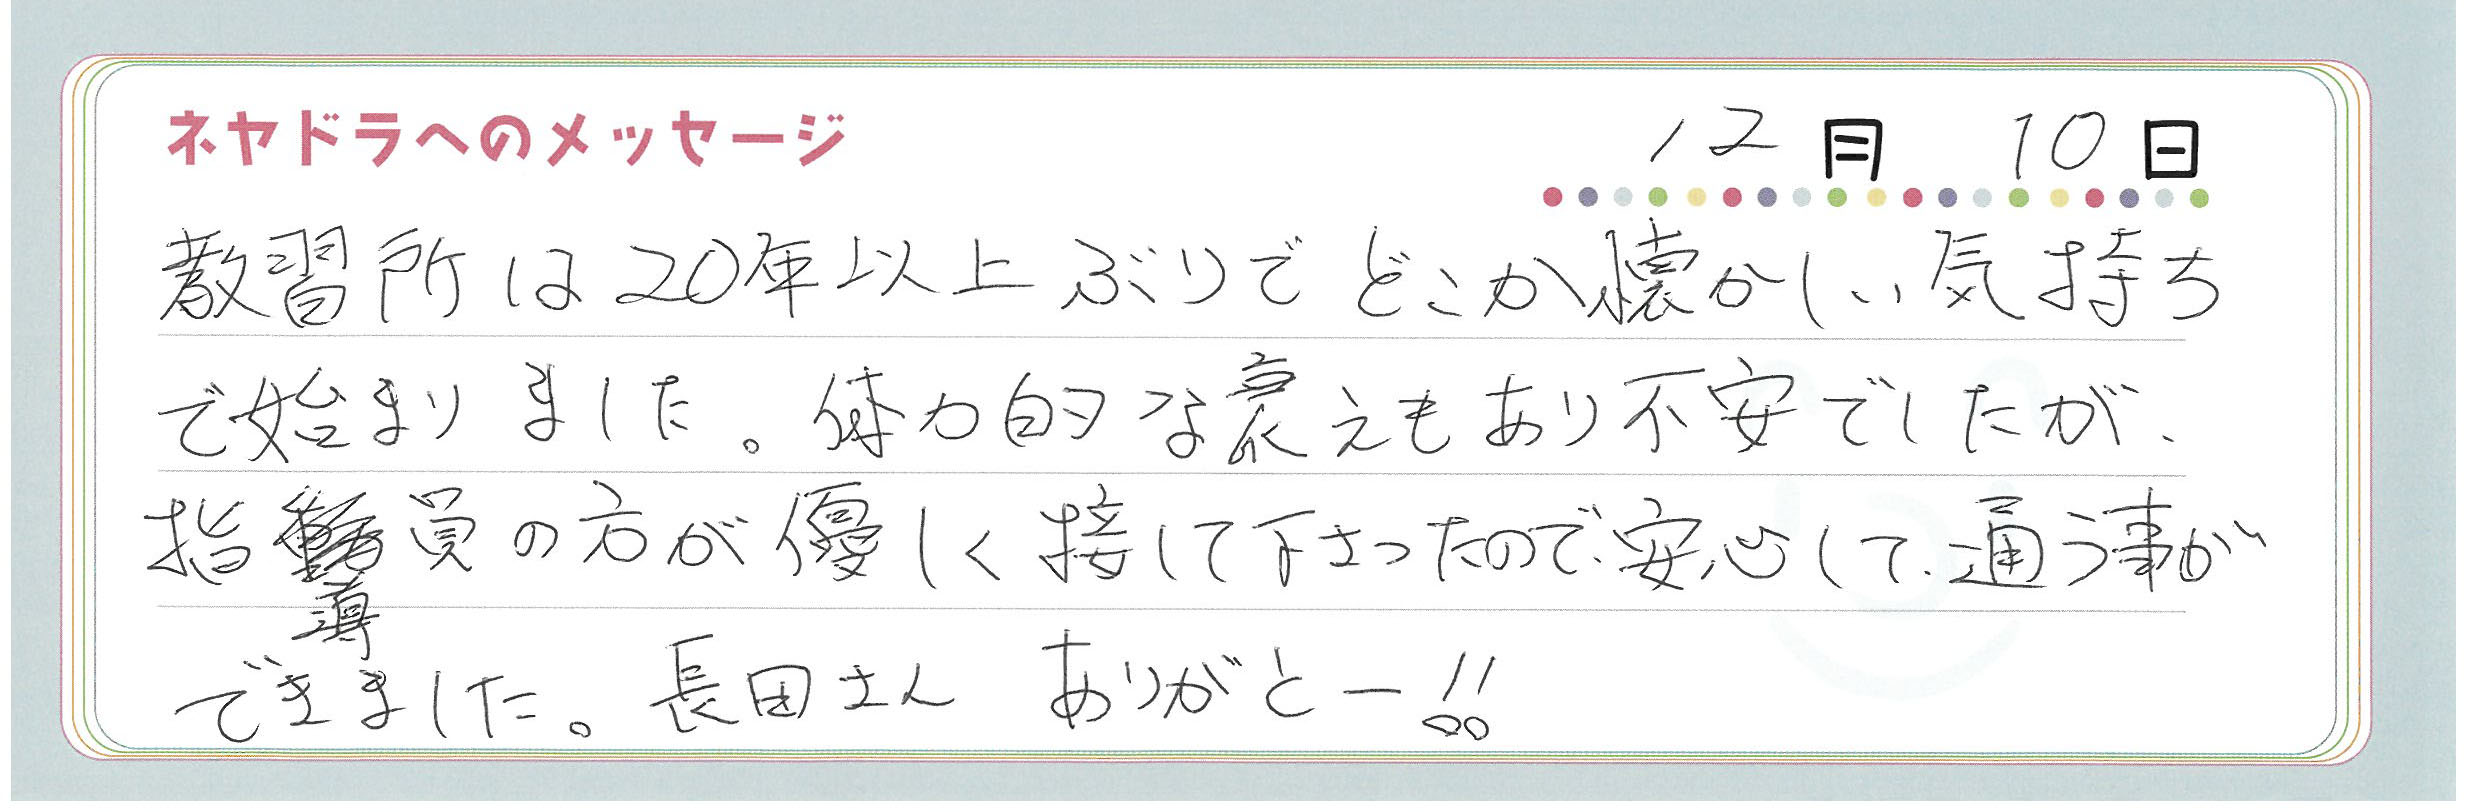 ネヤドラへのメッセージ
12月 10日
教習所は20年以上ぶりでどこか懐かしい気持ち
で始まりました。体力的な衰えもあり不安でしたが、
指導員の方が優しく接して下さったので、安心して、通う事が
できました。長田さん ありがとー!!